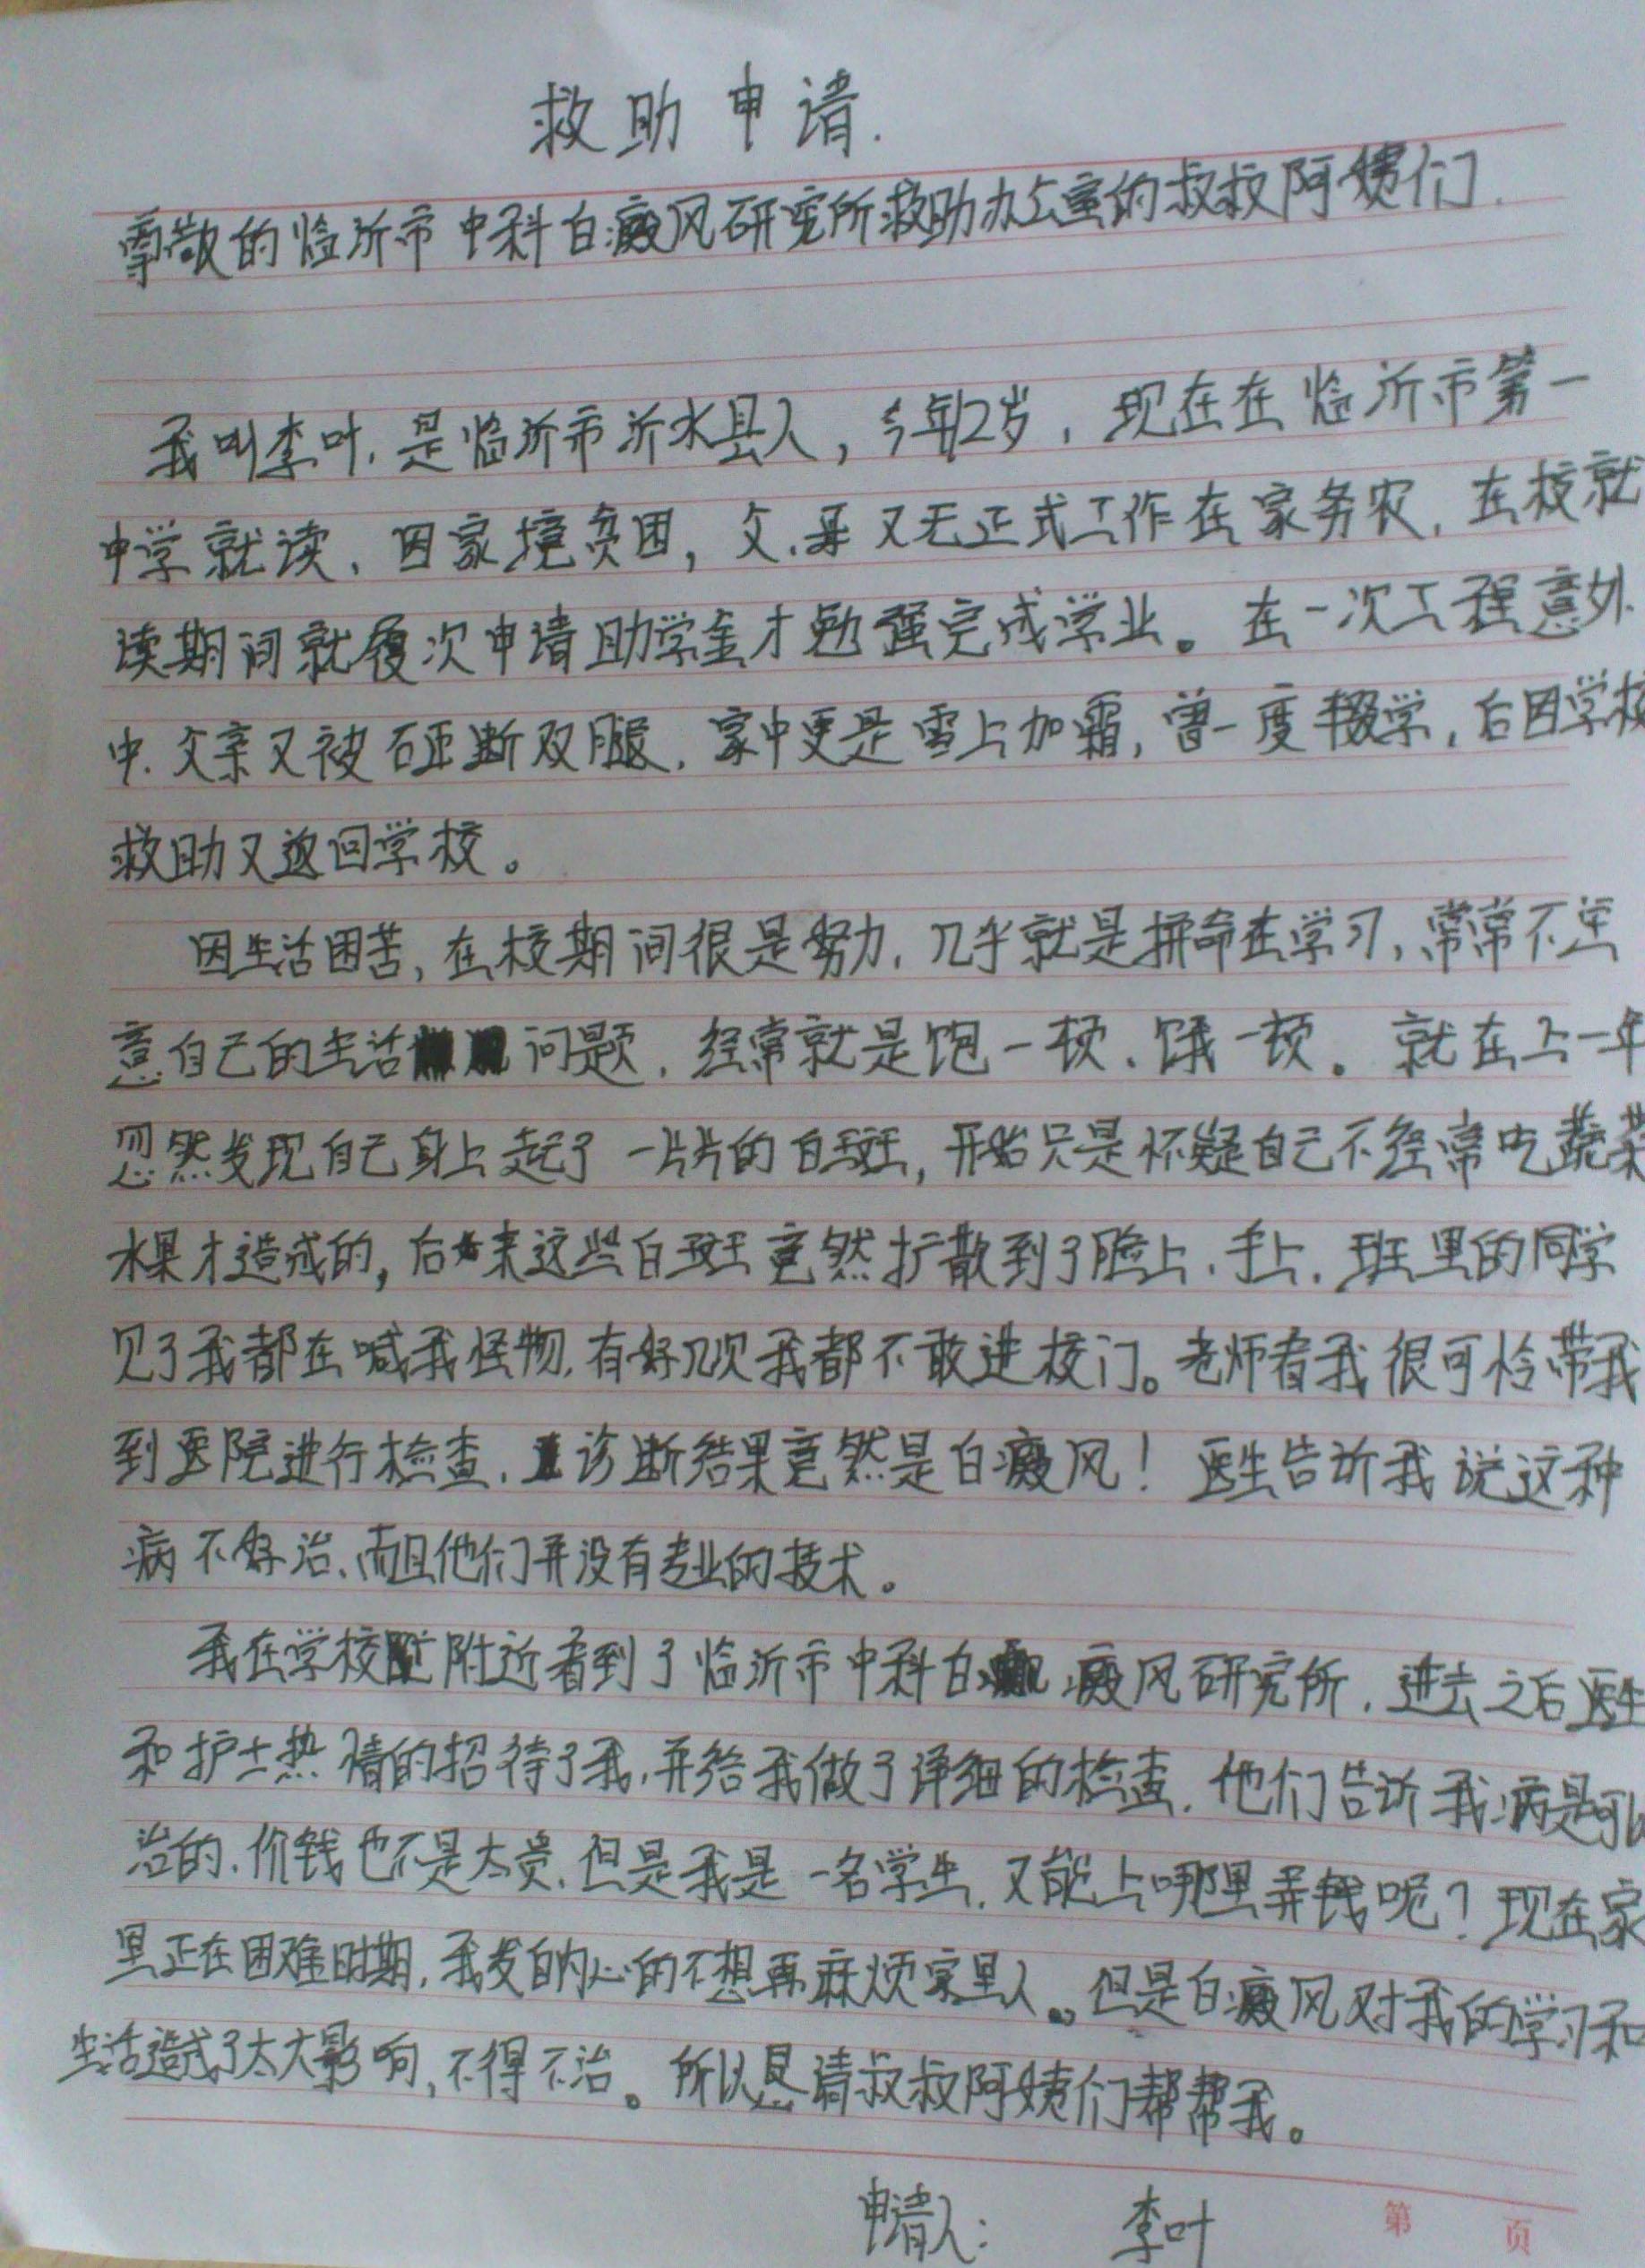 救助申请.
尊敬的临沂市中科白癜风研究所救助办公室的叔叔阿姨们.
我叫李叶,是临沂市沂水县人,今年12岁,现在在临沂市第一
中学就读、因家境贫困,父.母又无正式工作在家务农,在校就
读期间就屡次申请助学金才勉强完成学业。在一次工程意外
中.父亲又被砸断双腿,家中更是雪上加霜,曾一度辍学,后因学校
救助又返回学校。
因生活困苦,在校期间很是努力,几乎就是拼命在学习,常常不注
意自己的生活问题,经常就是饱一顿、饿一顿。就在上一年
忽然发现自己身上起了一片片的白斑,开始只是怀疑自己不经常吃蔬菜
水果才造成的,后来这些白斑竟然扩散到了脸上、手上,班里的同学
见了我都在喊我怪物,有好几次我都不敢进校门。老师看我很可怜带我
到医院进行检查,诊断结果竟然是白癜风!医生告诉我说这种
病不好治、而且他们并没有专业的技术。
我在学校附近看到了临沂市中科白癜风研究所,进去之后医生
和护士热情的招待了我,并给我做了详细的检查,他们告诉我病是可以
治的,价钱也不是太贵,但是我是一名学生,又能上哪里弄钱呢?现在家
里正在困难时期,我发自内心的不想再麻烦家里人。但是白癜风对我的学习和
生活造成了太大影响,不得不治。所以恳请叔叔阿姨们帮帮我。
申请人: 李叶
第 页